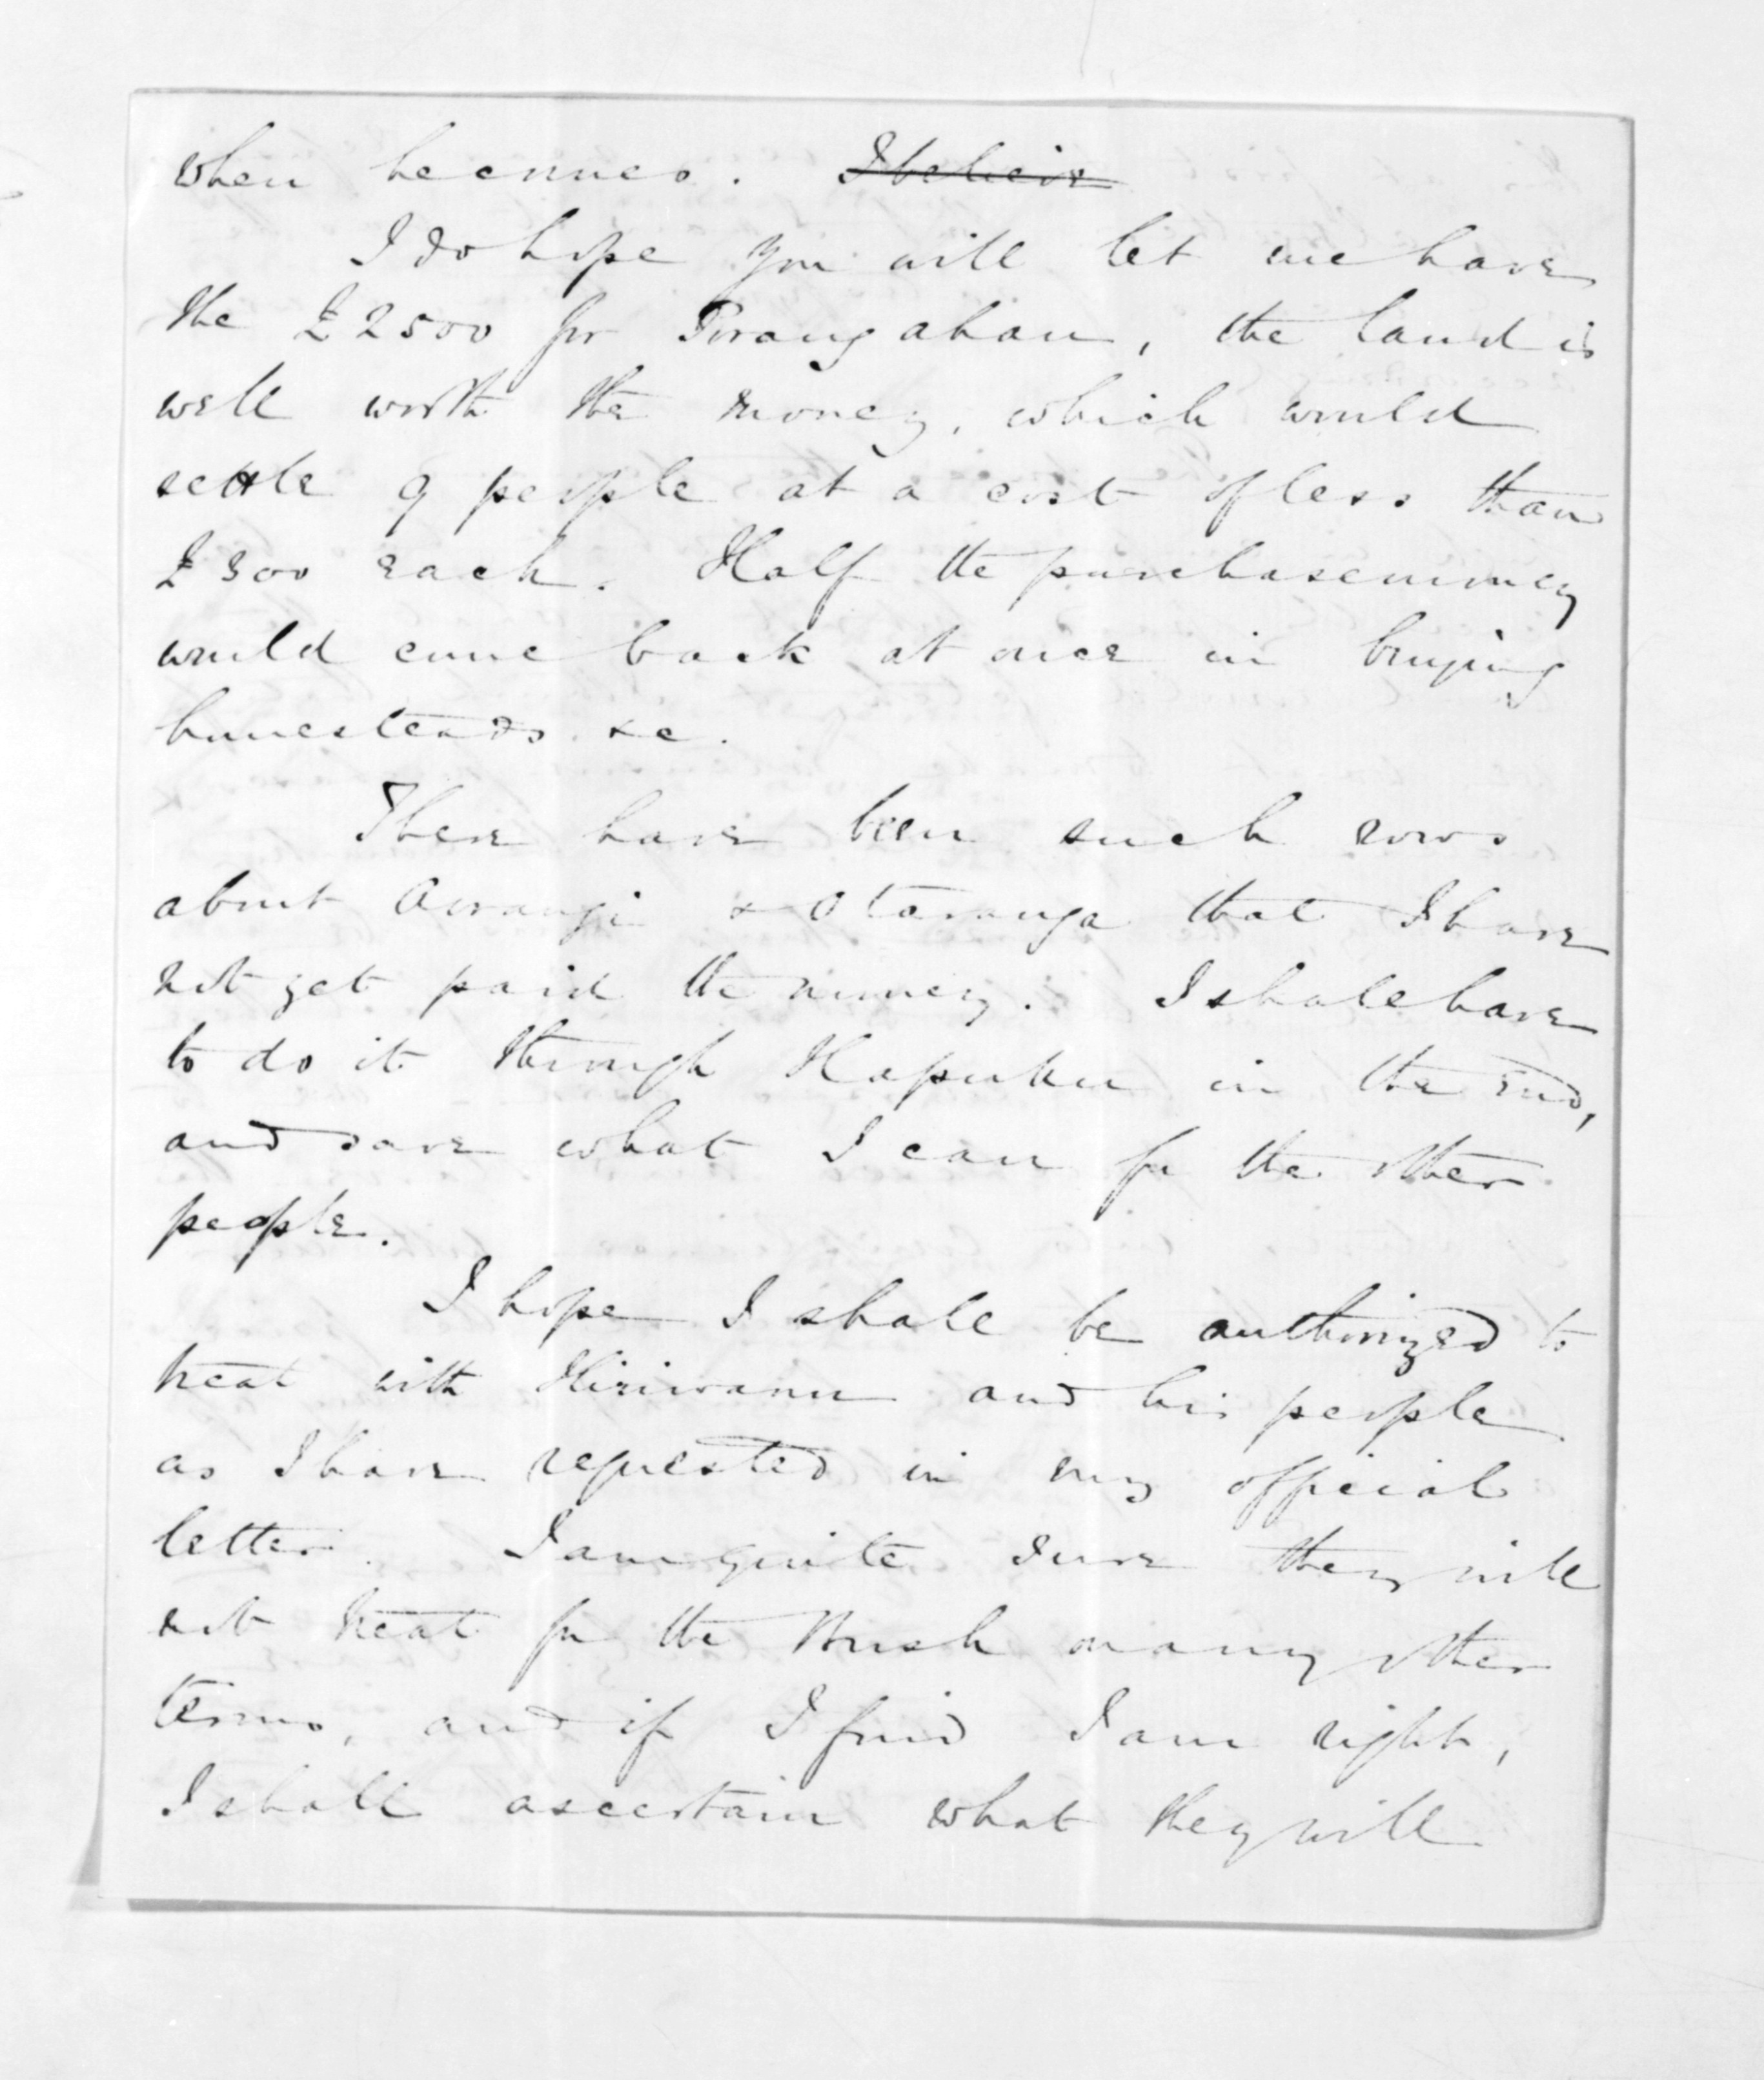 when he comes. I believe
I do hope you will let me have
the £2500 for Porangahau, the land is
well worth the money, which would
settle 9 people at a cost of less than
£300 each. Half the purchase money
would come back at once in buying
homesteads &c.
There have been such rows
about Aorangi & Otaranga that I have
not yet paid the money. I shall have
to do it through Hapuku in the end,
and save what I can for the other
people.
I hope I shall be authorized to
treat with Hiriwanu and his people
as I have requested in my official
letter. I am quite sure they will
not treat for the Bush on any other
terms, and if I find I am right,
I shall ascertain what they will